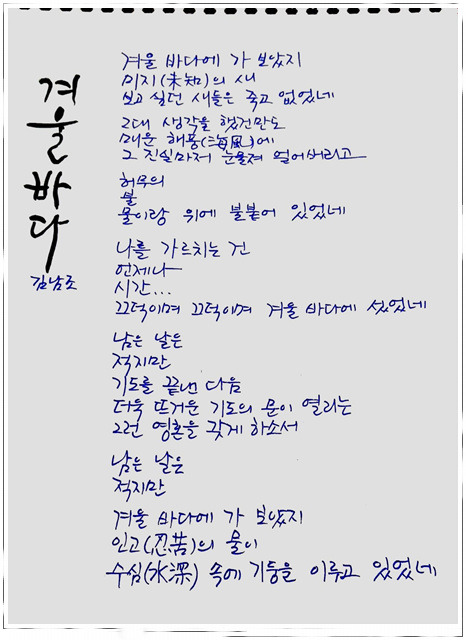 겨울 바다
김남조
겨울 바다에 가 보았지
미지(未知)의 새
보고 싶던 새들은 죽고 없었네
그대 생각을 했건만도
매운 해풍(海風)에
그 진실마저 눈물져 얼어버리고
허무의
불
물이랑 위에 불붙어 있었네
나를 가르치는 건
언제나
시간...
끄덕이며 끄덕이며 겨울 바다에 섰었네
남은 날은
적지만
기도를 끝낸 다음
더욱 뜨거운 기도의 문이 열리는
그런 영혼을 갖게 하소서
남은 날은
적지만
겨울 바다에 가 보았지
인고(忍苦)의 물이
수심(水深) 속에 기둥을 이루고 있었네